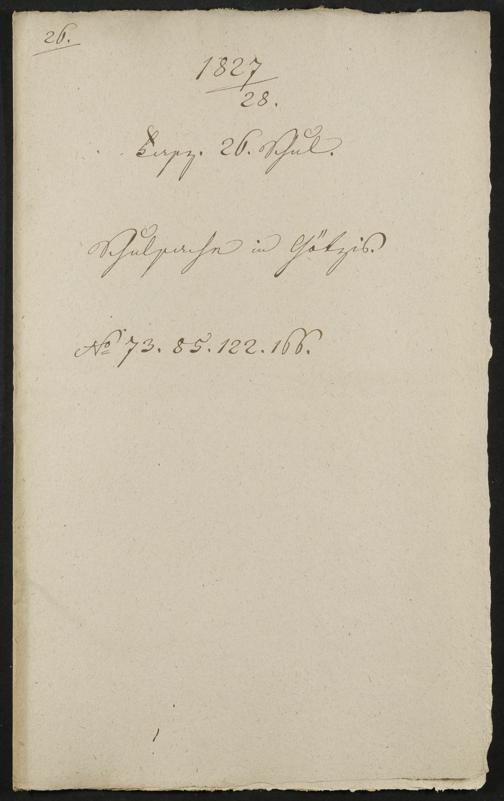 26.
1827
28.
Fasz. 26. Schul.
Schulsache in Götzis.
No 73. 85. 122. 166.